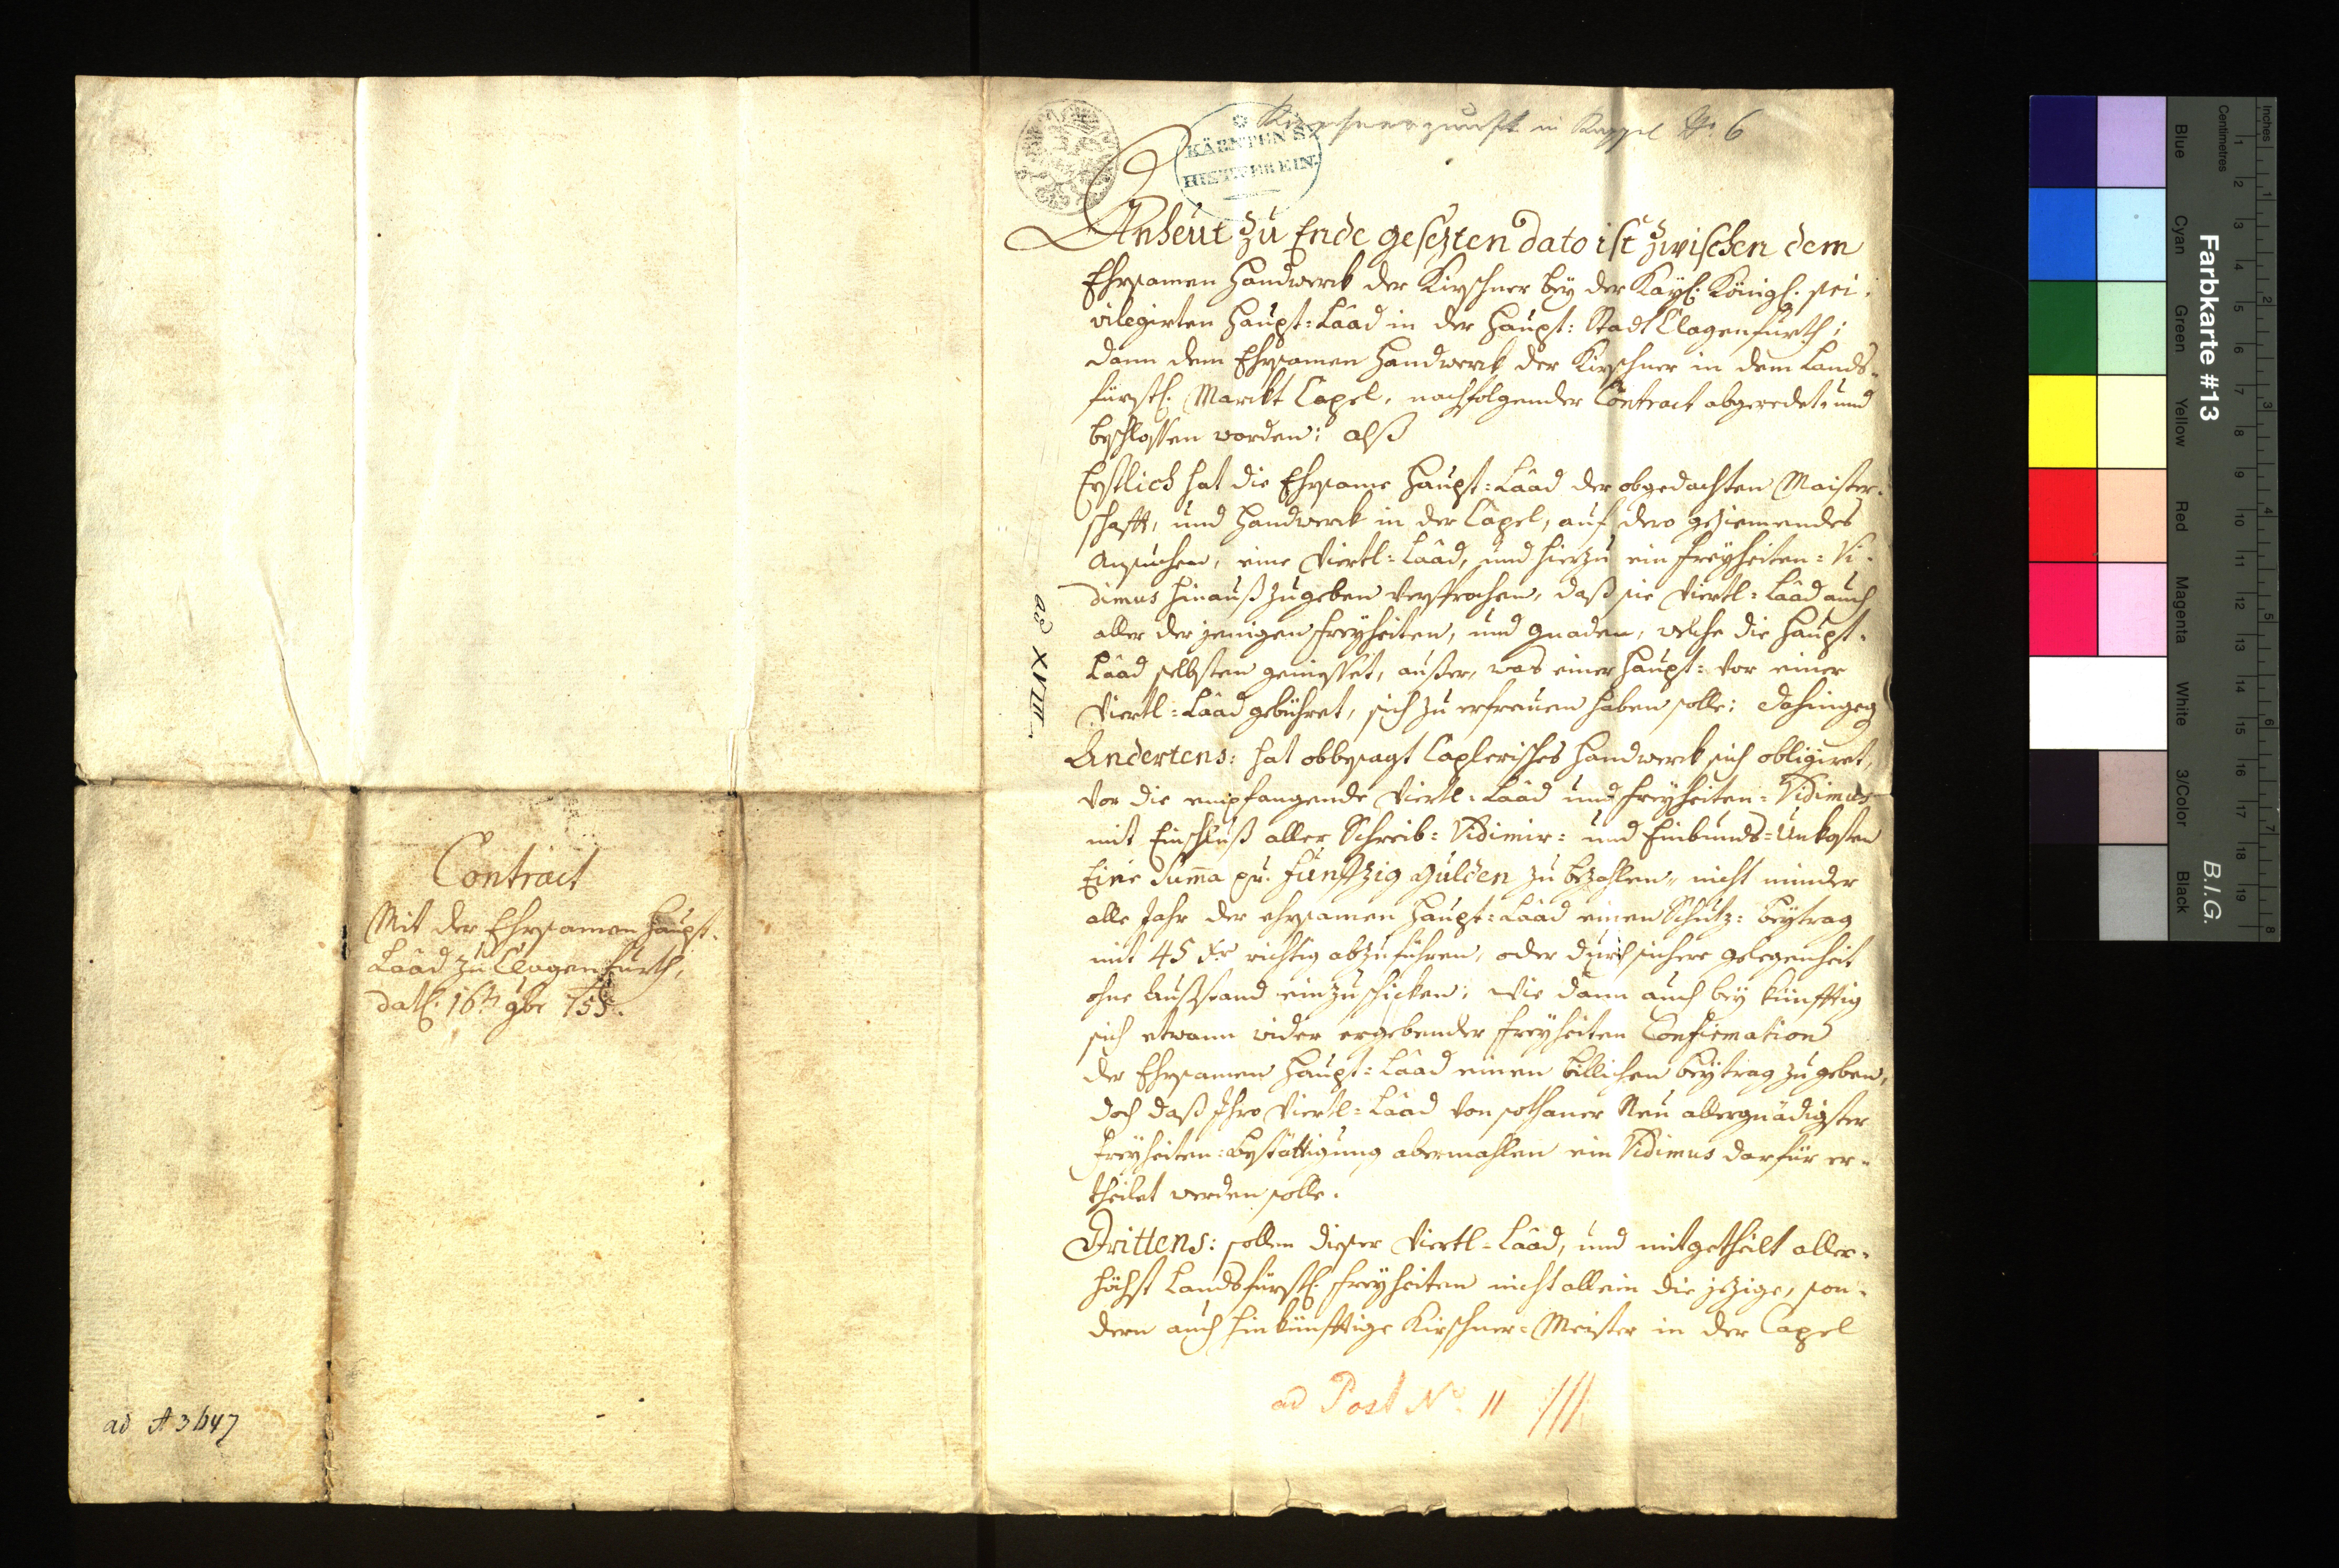 Contract
Mit der Ehrsamen Haupt-
Laad zu Clagenfurth,
dat. 16t. 9br 755.
ad A 3647
Kirschnerzunft in Kappel No. 6
KÄRNTEN'S
HIST.VEREIN.
Anheut zu Ende gesezten dato ist zwischen dem
Ehrsamen Handwerck der Kirschner bey der Kaÿs. Königl. pri-
vilegirten Haupt=Laad in der Haupt=Stadt Clagenfurth;
dann dem Ehrsamen Handwerck der Kirschner in dem Lands-
fürstl. Marckt Capel, nachfolgender Contract abgeredet, und
beschlossen worden; alß
Erstlich hat die Ehrsame Haupt=Laad der obgedachten Maister-
schafft, und Handwerck in der Capel, auf dero geziemendes
Ansuchen, eine Viertl=Laad, und hierzu ein Freyheiten=Vi-
dimus hinauß zu geben versprochen, daß sie Viertl=Laad auch
aller der jenigen Freyheiten, und Gnaden, welche die Haupt-
Laad selbsten geniesset, ausser, was einer Haupt= vor einer
Viertl=Laad gebühret, sich zu erfreuen haben solle; dahingeg
Andertens: hat obbesagt Caplerisches Handwerck sich obligiret,
vor die empfangende Viertl=Laad und Freyheiten=Vidimus
mit Einschluß aller Schreib= Vidimir= und Einbunds=Unkosten
Eine Summa pr. Fünffzig Gulden zu bezahlen, nicht minder
alle Jahr der ehrsamen Haupt=Laad einen Schutz=Beytrag
mit 45 xr richtig abzuführen, oder durch sichere Gelegenheit
ohne Ausstand einzuschicken; wie dann auch bey künfftig
sich etwann wider ergebender Freyheiten Confirmation
der Ehrsamen Haupt=Laad einen billichen Beytrag zu geben,
doch daß Ihro Viertl=Laad von sothaner Neu allergnädigster
Freyheiten=Bestättigung abermahlen ein Vidimus darfür er-
theilet werden solle.
Drittens: sollen dieser Viertl=Laad, und mitgetheilt aller-
höchst Landsfürstl. Freyheiten nicht allein die jezige, son-
dern auch hinkünfftige Kirschner=Meister in der Capel
ad XVIII
ad Post No. 11
B.I.G.
Farbkarte #13
Blue Cyan Green Yellow Red Magenta White 3/Color Black
Inches 1 2 3 4 5 6 7 8
Centimetres 1 2 3 4 5 6 7 8 9 10 11 12 13 14 15 16 17 18 19